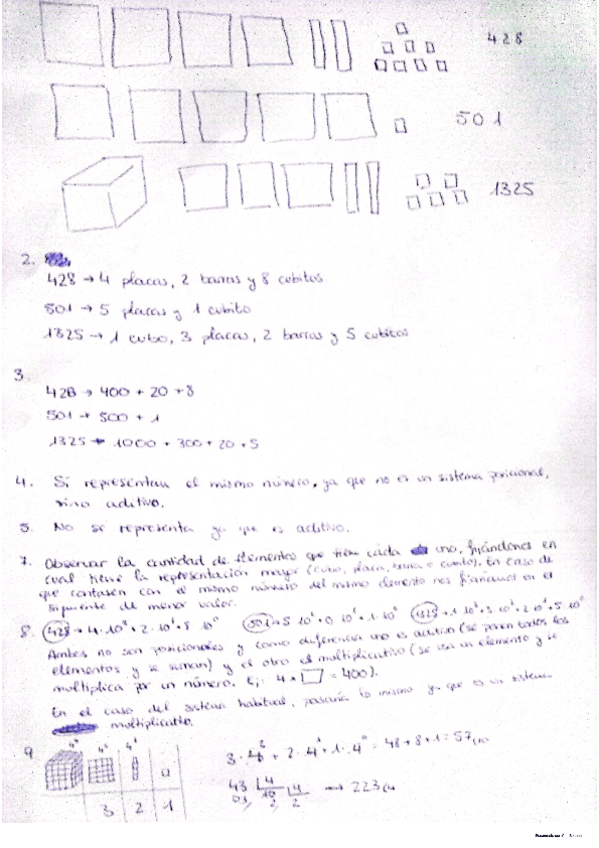 428
501
1325
2.
428 → 4 placas, 2 barras y 8 cubitos
501 → 5 placas y 1 cubito
1325 → 1 cubo, 3 placas, 2 barras y 5 cubitos
3.
428 → 400 + 20 + 8
501 → 500 + 1
1325 → 1000 + 300 + 20 + 5
4. Si representan el mismo número, ya que no es un sistema posicional,
sino aditivo.
5. No se representa ya que es aditivo.
7. Observar la cantidad de elementos que tiene cada uno, fijándonos en
cual tiene la representación mayor (cubo, placa, barra o cubito). En caso de
que contasen con el mismo número del mismo elemento nos fijaríamos en el
siguiente de menor valor.
8. 428 → 4·10² + 2·10¹ + 8·10⁰ 501 → 5·10² + 0·10¹ + 1·10⁰ 1325 → 1·10³ + 3·10² + 2·10¹ + 5·10⁰
Ambos no son posicionales y como diferencia uno es aditivo (se ponen todos los
elementos y se suman) y el otro es multiplicativo (se usa un elemento y se
multiplica por un número. Ej: 4 × □ = 400).
En el caso del sistema habitual, pasaría lo mismo ya que es un sistema
multiplicativo.
9
4³ 4² 4¹
3 2 1
3·4² + 2·4¹ + 1·4⁰ = 48 + 8 + 1 = 57
43 4
03 10 4
2 2 → 223